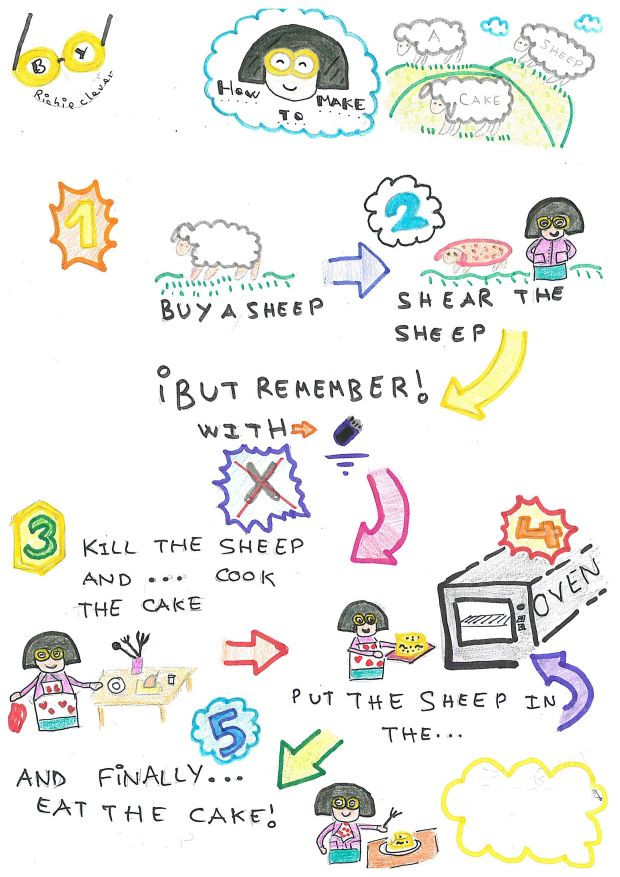 BY
Richie clever
HOW
TO
MAKE
A
SHEEP
CAKE
1
BUY A SHEEP
2
SHEAR THE
SHEEP
¡BUT REMEMBER!
WITH
3
KILL THE SHEEP
AND ... COOK
THE CAKE
4
OVEN
PUT THE SHEEP IN
THE...
5
AND FINALLY...
EAT THE CAKE!